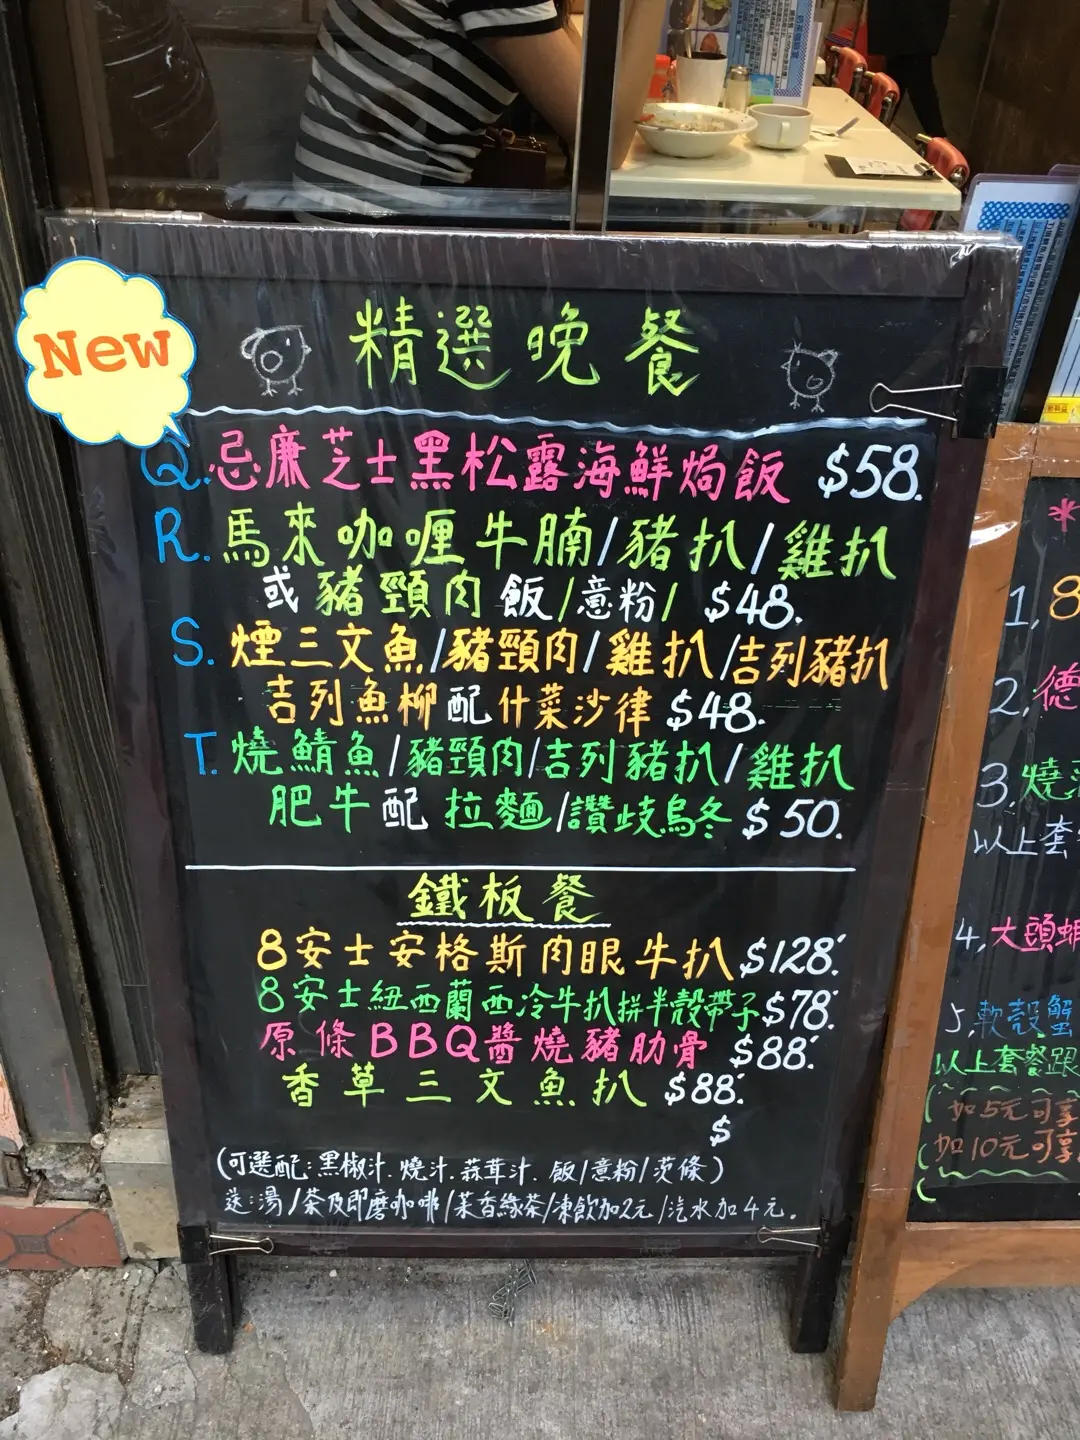 New
精選晚餐
Q.忌廉芝士黑松露海鮮焗飯 $58.
R.馬來咖喱牛腩/豬扒/雞扒
或豬頸肉飯/意粉/ $48.
S.煙三文魚/豬頸肉/雞扒/吉列豬扒
吉列魚柳配什菜沙律 $48.
T.燒鯖魚/豬頸肉/吉列豬扒/雞扒
肥牛配拉麵/讚歧烏冬 $50.
鐵板餐
8安士安格斯肉眼牛扒 $128.
8安士紐西蘭西冷牛扒拼半殼帶子 $78.
原條BBQ醬燒豬肋骨 $88.
香草三文魚扒 $88.
$
(可選配:黑椒汁.燒汁.蒜茸汁. 飯/意粉/茨條)
送:湯/茶及即磨咖啡/茉香綠茶/凍飲加2元/汽水加4元.
*
1, 8
2, 德
3, 燒
以上套
4, 大頭蝦
5, 軟殼蟹
以上套餐跟
(加5元可享
(加10元可享
(